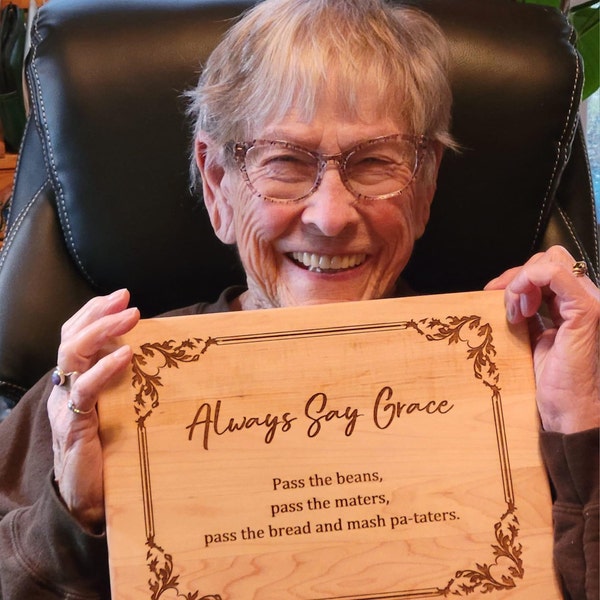 Always Say Grace
Pass the beans,
pass the maters,
pass the bread and mash pa-taters.